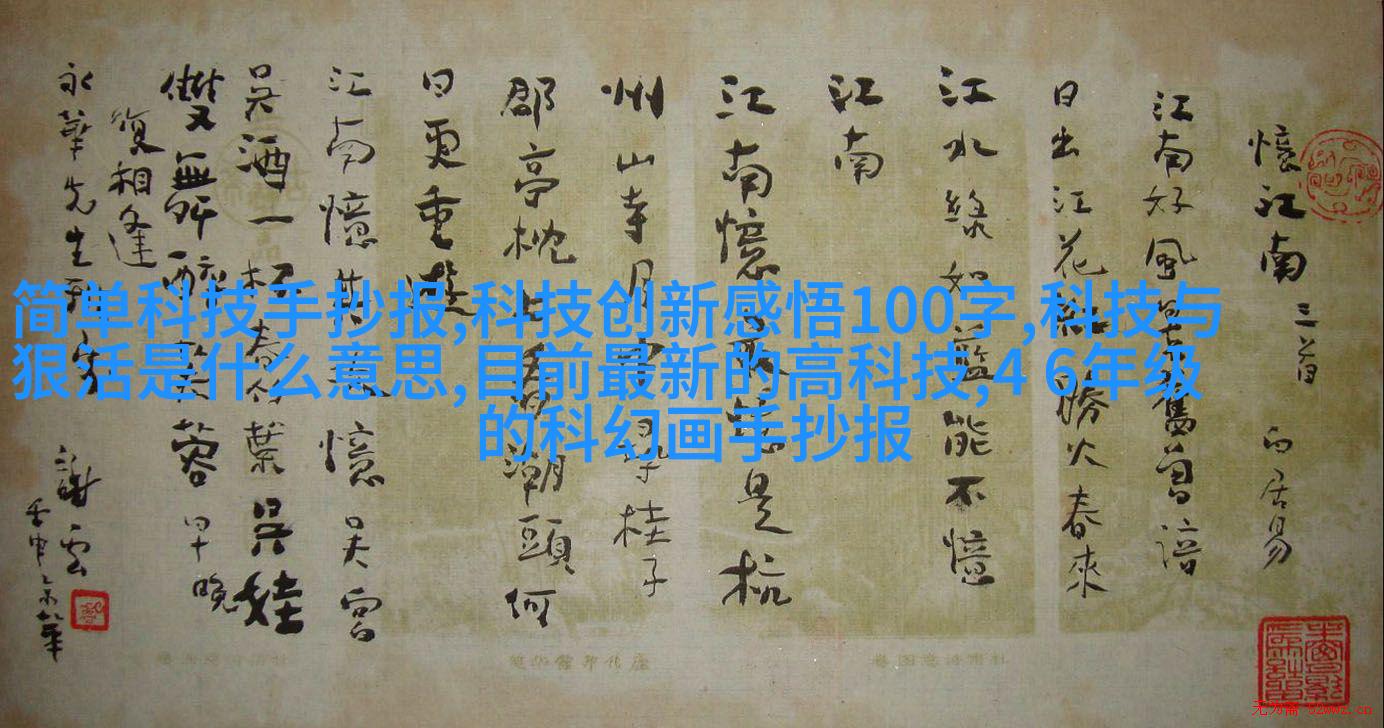 简单科技手抄报,科技创新感悟100字,科技与
狠活是什么意思,目前最新的高科技,4 6年级
的科幻画手抄报
憶江南 三首 白居易
江南好風景舊曾諳
日出江花紅勝火春來
江水綠如藍能不憶
江南
江南憶最憶是杭
州山寺月中尋桂子
郡亭枕上看潮頭何
日更重遊
江南憶其次憶吳宮
吳酒一杯春竹葉吳娃
雙舞醉芙蓉早晚
復相逢
永華先生
謝雲
壬申京華
无为斋 52wwz.cn